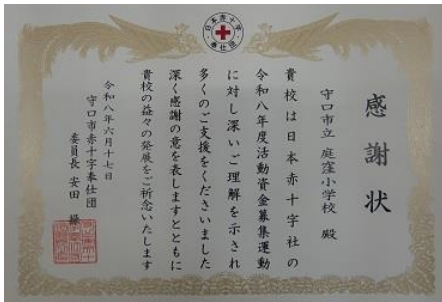 日本赤十字
奉仕団
感謝状
守口市立 庭窪小学校 殿
貴校は日本赤十字社の
令和八年度活動資金募集運動
に対し深いご理解を示され
多くのご支援をくださいました
深く感謝の意を表しますとともに
貴校の益々の発展をご祈念いたします
令和八年六月十七日
守口市赤十字奉仕団
委員長 安田